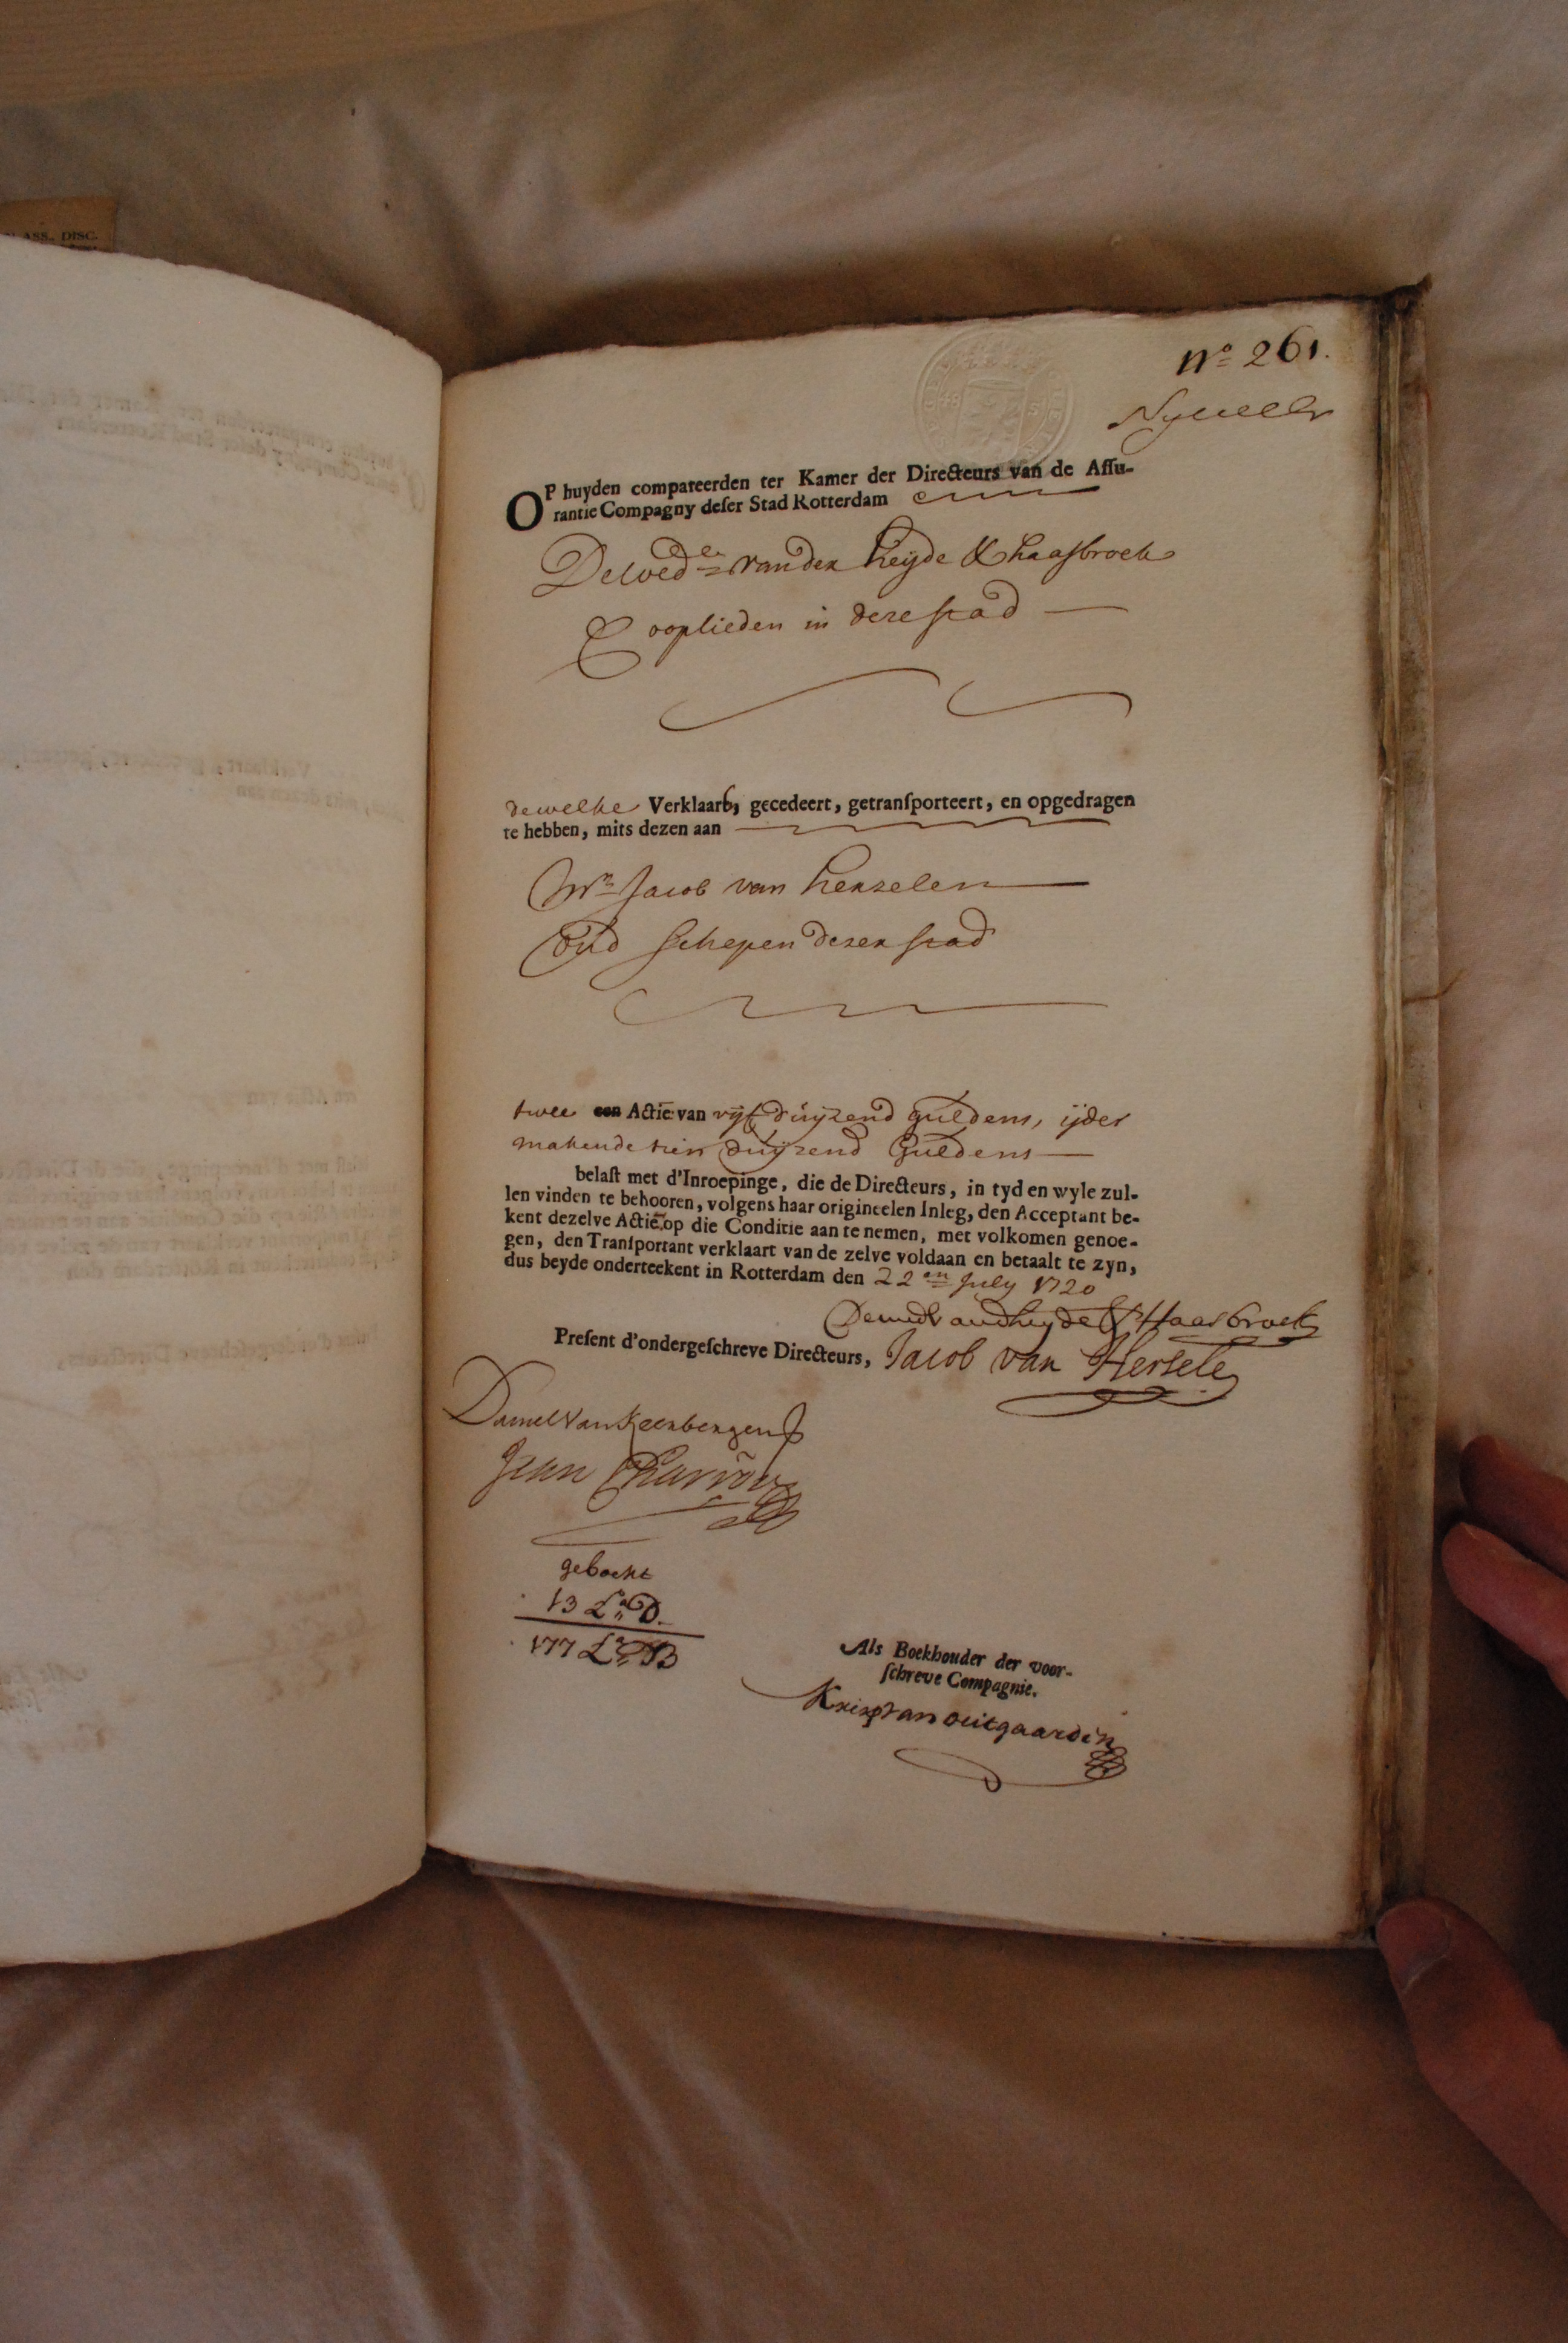 ASS. DISC.
No 261.
OP huyden compareerden ter Kamer der Directeurs van de Assu-
rantie Compagny deser Stad Rotterdam
De wed.e van der heyde & haasbroek
Cooplieden in dese stad
dewelke Verklaarb, gecedeert, getransporteert, en opgedragen
te hebben, mits dezen aan
Mr Jacob van herzelen
Oud schepen dezer stad
twee een Actie van vijf duijzend guldens, ijder
makende tien duijzend Guldens
belast met d'Inroepinge, die de Directeurs, in tyd en wyle zul-
len vinden te behooren, volgens haar origineelen Inleg, den Acceptant be-
kent dezelve Actie op die Conditie aan te nemen, met volkomen genoe-
gen, den Transportant verklaart van de zelve voldaan en betaalt te zyn,
dus beyde onderteekent in Rotterdam den 22en July 1720
De wed vandheyde & Haasbroek
Present d'ondergeschreve Directeurs, Jacob van Hersele
Daniel van Keerbergen
Jean Charron
geboekt
13 La D.
177 La B
Als Boekhouder der voor-
schreve Compagnie.
van outgaarden